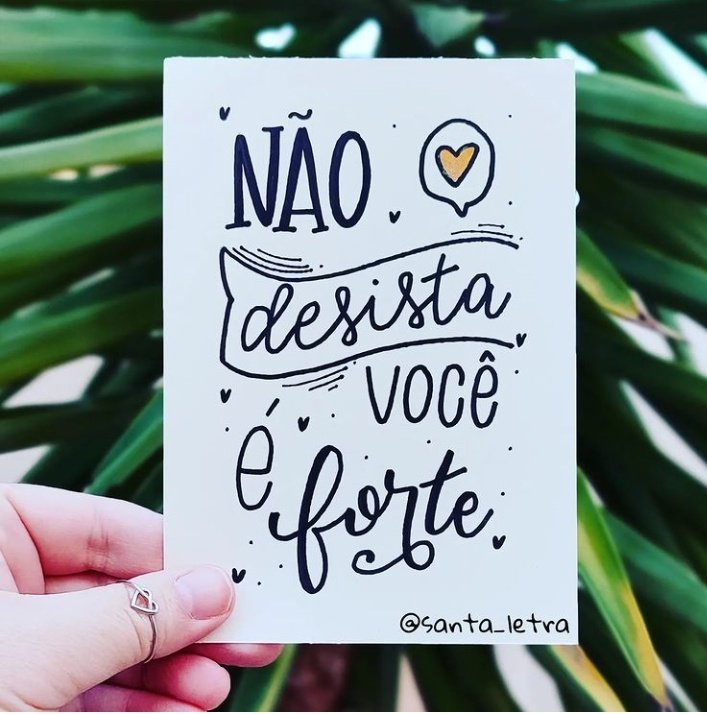 NÃO
desista
VOCÊ
é forte
@santa_letra